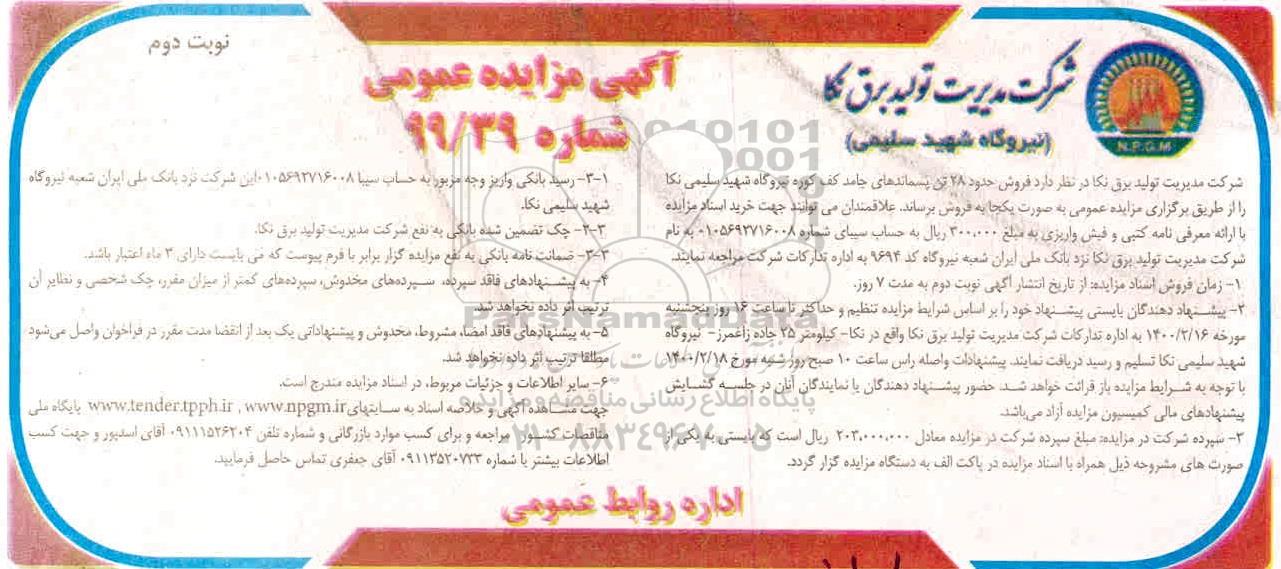 نوبت دوم
آگهی مزایده عمومی
شماره ۹۹/۳۹
شرکت مدیریت تولید برق نکا
(نیروگاه شهید سلیمی)
N.P.G.M
شرکت مدیریت تولید برق نکا در نظر دارد فروش حدود ۲۸ تن پسماندهای جامد کف کوره نیروگاه شهید سلیمی نکا
را از طریق برگزاری مزایده عمومی به صورت یکجا به فروش برساند. علاقمندان می توانند جهت خرید اسناد مزایده
با ارائه معرفی نامه کتبی و فیش واریزی به مبلغ ۳۰۰،۰۰۰ ریال به حساب سیبای شماره ۰۱۰۵۶۹۲۷۱۶۰۰۸ به نام
شرکت مدیریت تولید برق نکا نزد بانک ملی ایران شعبه نیروگاه کد ۹۶۹۴ به اداره تدارکات شرکت مراجعه نمایند.
۱- زمان فروش اسناد مزایده: از تاریخ انتشار آگهی نوبت دوم به مدت ۷ روز.
۲- پیشنهاد دهندگان بایستی پیشنهاد خود را بر اساس شرایط مزایده تنظیم و حداکثر تا ساعت ۱۶ روز پنجشنبه
مورخه ۱۴۰۰/۲/۱۶ به اداره تدارکات شرکت مدیریت تولید برق نکا واقع در نکا- کیلومتر ۲۵ جاده زاغمرز- نیروگاه
شهید سلیمی نکا تسلیم و رسید دریافت نمایند. پیشنهادات واصله راس ساعت ۱۰ صبح روز شنبه مورخ ۱۴۰۰/۲/۱۸
با توجه به شرایط مزایده باز قرائت خواهد شد. حضور پیشنهاد دهندگان یا نمایندگان آنان در جلسه گشایش
پیشنهادهای مالی کمیسیون مزایده آزاد می‌باشد.
۳- سپرده شرکت در مزایده: مبلغ سپرده شرکت در مزایده معادل ۲۰۳،۰۰۰،۰۰۰ ریال است که بایستی به یکی از
صورت های مشروحه ذیل همراه با اسناد مزایده در پاکت الف به دستگاه مزایده گزار گردد.
۳-۱- رسید بانکی واریز وجه مزبور به حساب سیبا ۰۱۰۵۶۹۲۷۱۶۰۰۸ این شرکت نزد بانک ملی ایران شعبه نیروگاه
شهید سلیمی نکا.
۳-۲- چک تضمین شده بانکی به نفع شرکت مدیریت تولید برق نکا.
۳-۳- ضمانت نامه بانکی به نفع مزایده گزار برابر با فرم پیوست که می بایست دارای ۳ ماه اعتبار باشد.
۴- به پیشنهادهای فاقد سپرده، سپرده‌های مخدوش، سپرده‌های کمتر از میزان مقرر، چک شخصی و نظایر آن
ترتیب اثر داده نخواهد شد.
۵- به پیشنهادهای فاقد امضا، مشروط، مخدوش و پیشنهاداتی یک بعد از انقضا مدت مقرر در فراخوان واصل می‌شود
مطلقا ترتیب اثر داده نخواهد شد.
۶- سایر اطلاعات و جزئیات مربوط، در اسناد مزایده مندرج است.
جهت مشاهده آگهی و خلاصه اسناد به سایتهای www.tender.tpph.ir , www.npgm.ir پایگاه ملی
مناقصات کشور مراجعه و برای کسب موارد بازرگانی و شماره تلفن ۰۹۱۱۱۵۲۶۲۰۴ آقای اسدپور و جهت کسب
اطلاعات بیشتر با شماره ۰۹۱۱۳۵۲۰۷۳۳ آقای جعفری تماس حاصل فرمایید.
اداره روابط عمومی
ParsNamadData
پایگاه اطلاع رسانی مناقصه و مزایده
۰۲۱-۸۸۳۴۹۶۷۰-۵